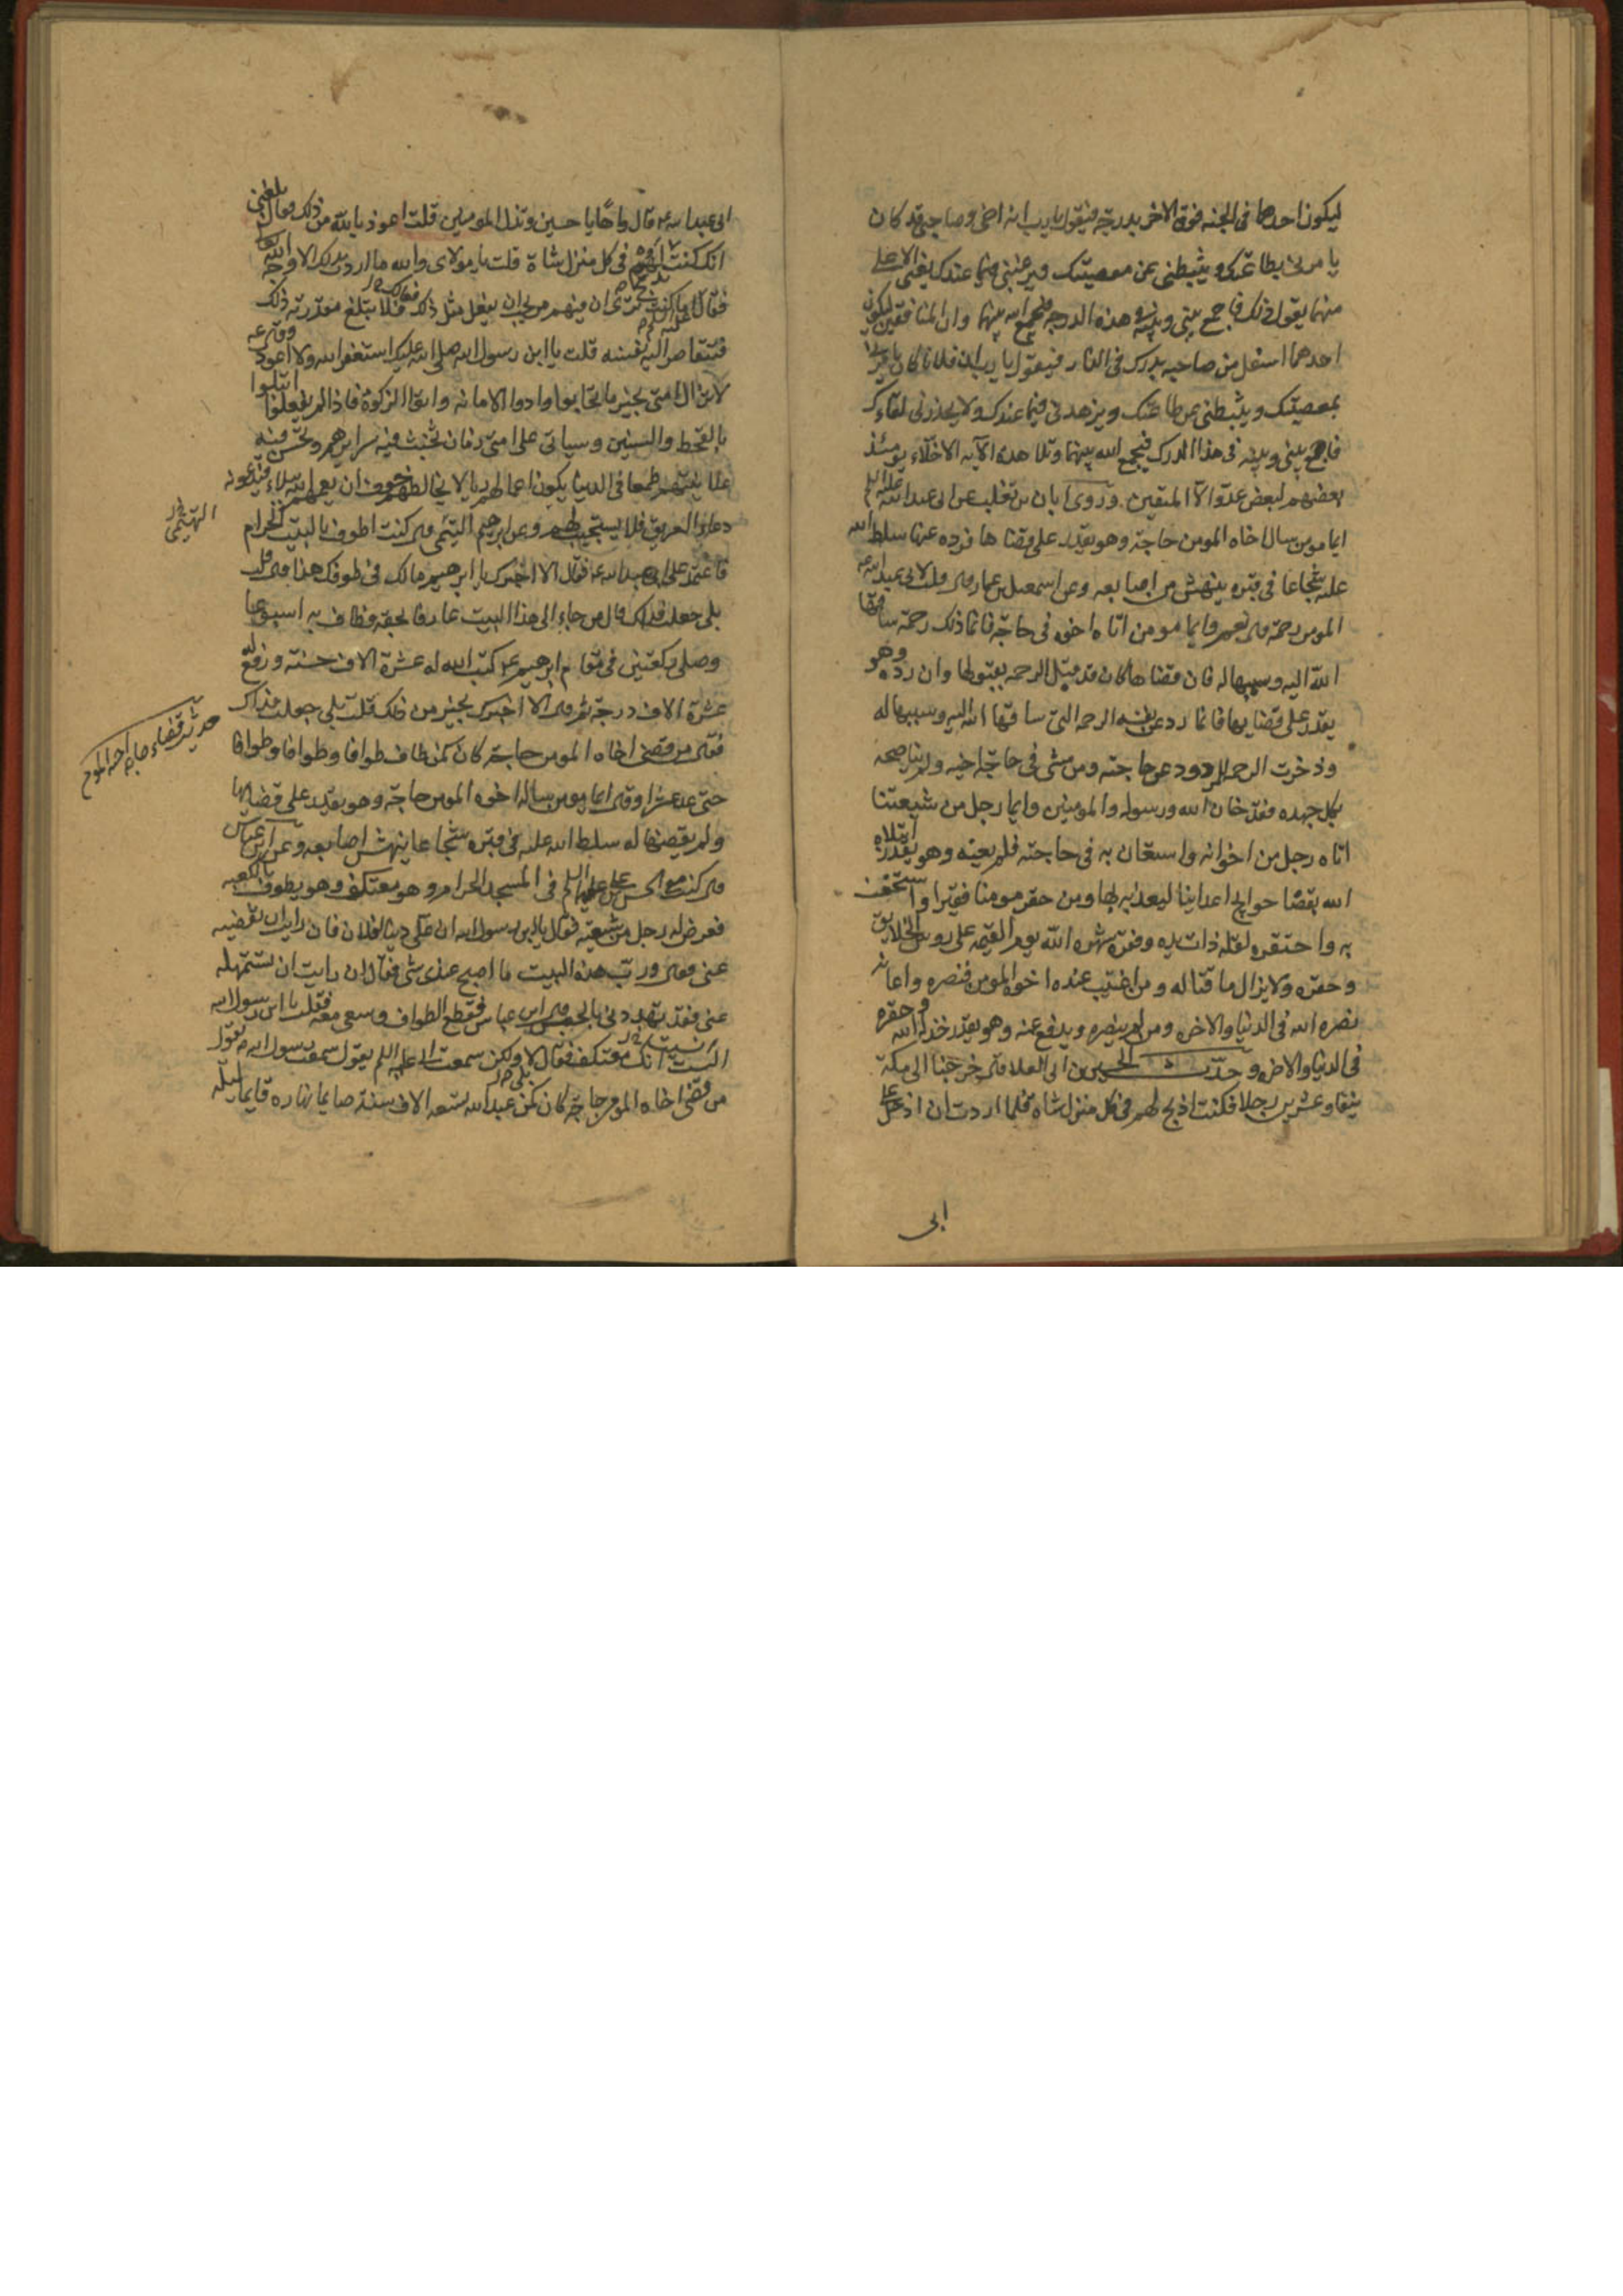 ليكون احدهما فى الجنه فوق الاخر بدرجة فيقول يا رب ان اخى وصاحبى قد كان
يا مرنى بطاعتك ويثبطنى عن معصيتك ويرغبنى فيما عندك يعنى الاعلى
منهما يقول ذلك فاجمع بينى وبينه فى هذه الدرجه فيجمع الله بينهما وان المنافقين ليكون
احدهما اسفل من صاحبه بدرك فى النار فيقول يا رب ان فلانا كان يامرنى
بمعصيتك ويثبطنى عن طاعتك ويزهدنى فيما عندك ولا يحذرنى لقاءك
فاجمع بينى وبينه فى هذا الدرك فيجمع الله بينهما وتلا هذه الآيه الاخلاء يومئذ
بعضهم لبعض عدو الا المتقين وروى ابان بن تغلب عن ابى عبد الله عليه السلم
ايما مومن سال اخاه المومن حاجة وهو يقدر على قضاها فرده عنها سلط الله
عليه شجاعا فى قبره ينهش من اصابعه وعن اسمعيل بن عمار قال قلت لابى عبد الله
المومن رحمة قال نعم وايما مومن اتاه اخوه فى حاجة فانما ذلك رحمة ساقها
الله اليه وسببها له فان قضاها كان قد قبل الرحمه بقبولها وان رده وهو
يقدر على قضايها فانما رد عن نفسه الرحمه التى ساقها الله اليه وسببها له
وذخرت الرحمه للمردود عن حاجته ومن مشى فى حاجة اخيه ولم يناصحه
بكل جهده فقد خان الله ورسوله والمومنين وايما رجل من شيعتنا
اتاه رجل من اخوانه واستعان به فى حاجته فلم يعينه وهو يقدر ابتلاه
الله بقضا حوايج اعداينا ليعذبه بها ومن حقر مومنا فقيرا واستخف
به واحتقره لقلة ذات يده وفقره شهره الله يوم القيمه على روس الخلايق
وحقره ولا يزال ماقتا له ومن اغتيب عنده اخوه المومن فنصره واعانه
نصره الله فى الدنيا والاخره ومن لم ينصره ويدفع عنه وهو يقدر خذله الله وحقره
فى الدنيا والاخره وحدث الحسين بن ابى العلا قال خرجنا الى مكة
نيفا وعشرين رجلا فكنت اذبح لهم فى كل منزل شاة فلما اردت ان ادخل على
ابى
ابى عبد الله قال واها يا حسين وتذل المومنين قلت اعوذ بالله من ذلك فقال بلغنى
انك كنت تذبح لهم فى كل منزل شاة قلت يا مولاى والله ما اردت بذلك الا وجه الله
فقال اما كنت ترى ان فيهم من يحب ان يفعل مثل ذلك فلا تبلغ مقدرته ذلك
فتتقاصر اليه نفسه قلت يا ابن رسول الله صلى الله عليك استغفر الله ولا اعود
لا يزال امتى بخير ما تحابوا وادوا الامانه واتوا الزكوة فاذا لم يفعلوا ابتلوا
بالقحط والسنين وسياتى على امتى زمان تخبث فيه سرايرهم وتحسن فيه
علانيتهم طمعا فى الدنيا يكون اعمالهم ريا لا يخالطهم خوف ان يعمهم الله ببلاء فيدعونه
دعاء الغريق فلا يستجيب لهم وعن ابرهيم التيمى قال كنت اطوف بالبيت الحرام
فاعتمد على ابو عبد الله فقال الا اخبرك يا ابرهيم مالك فى طوافك هذا قال قلت
بلى جعلت فداك قال من جاء الى هذا البيت عارفا بحقه وطاف به اسبوعا
وصلى ركعتين فى مقام ابرهيم كتب الله له عشرة الاف حسنة ورفع له
عشرة الاف درجة ثم قال الا اخبرك بخير من ذلك قلت بلى جعلت فداك
فقال من قضى اخاه المومن حاجة كان كمن طاف طوافا وطوافا وطوافا
حتى عد عشرا وقال ايما مومن ساله اخوه المومن حاجة وهو يقدر على قضايها
ولم يقضها له سلط الله عليه فى قبره شجاعا ينهش اصابعه وعن ابن عباس
قال كنت مع الحسن بن على عليهما السلم فى المسجد الحرام وهو معتكف وهو يطوف بالكعبه
فعرض له رجل من شيعته فقال يا بن رسول الله ان على دينا لفلان فان رايت ان تقضيه
عنى فقال ورب هذه البيت ما اصبح عندى شى فقال ان رايت ان تستمهله
عنى فقد تهددنى بالحبس قال ابن عباس فقطع الطواف وسعى معه فقلت يا ابن رسول الله
انسيت انك معتكف فقال لا ولكن سمعت ابى عليه السلم يقول سمعت رسول الله يقول
من قضى اخاه المومن حاجة كان كمن عبد الله تسعه الاف سنة صايما نهاره قايما ليله
حديث قضاء حاجه اخيه المومن